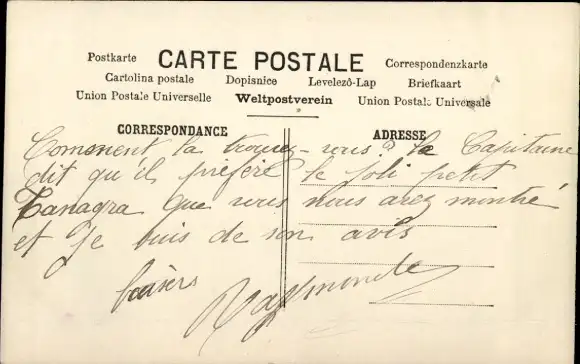 Postkarte CARTE POSTALE Correspondenzkarte
Cartolina postale Dopisnice Levelezô-Lap Briefkaart
Union Postale Universelle Weltpostverein Union Postale Universale
CORRESPONDANCE ADRESSE
Comment la trouvez-vous? le Capitaine
dit qu'il préfère le joli petit
Tanagra que vous nous avez montré
et je suis de son avis
baisers
Raymonde